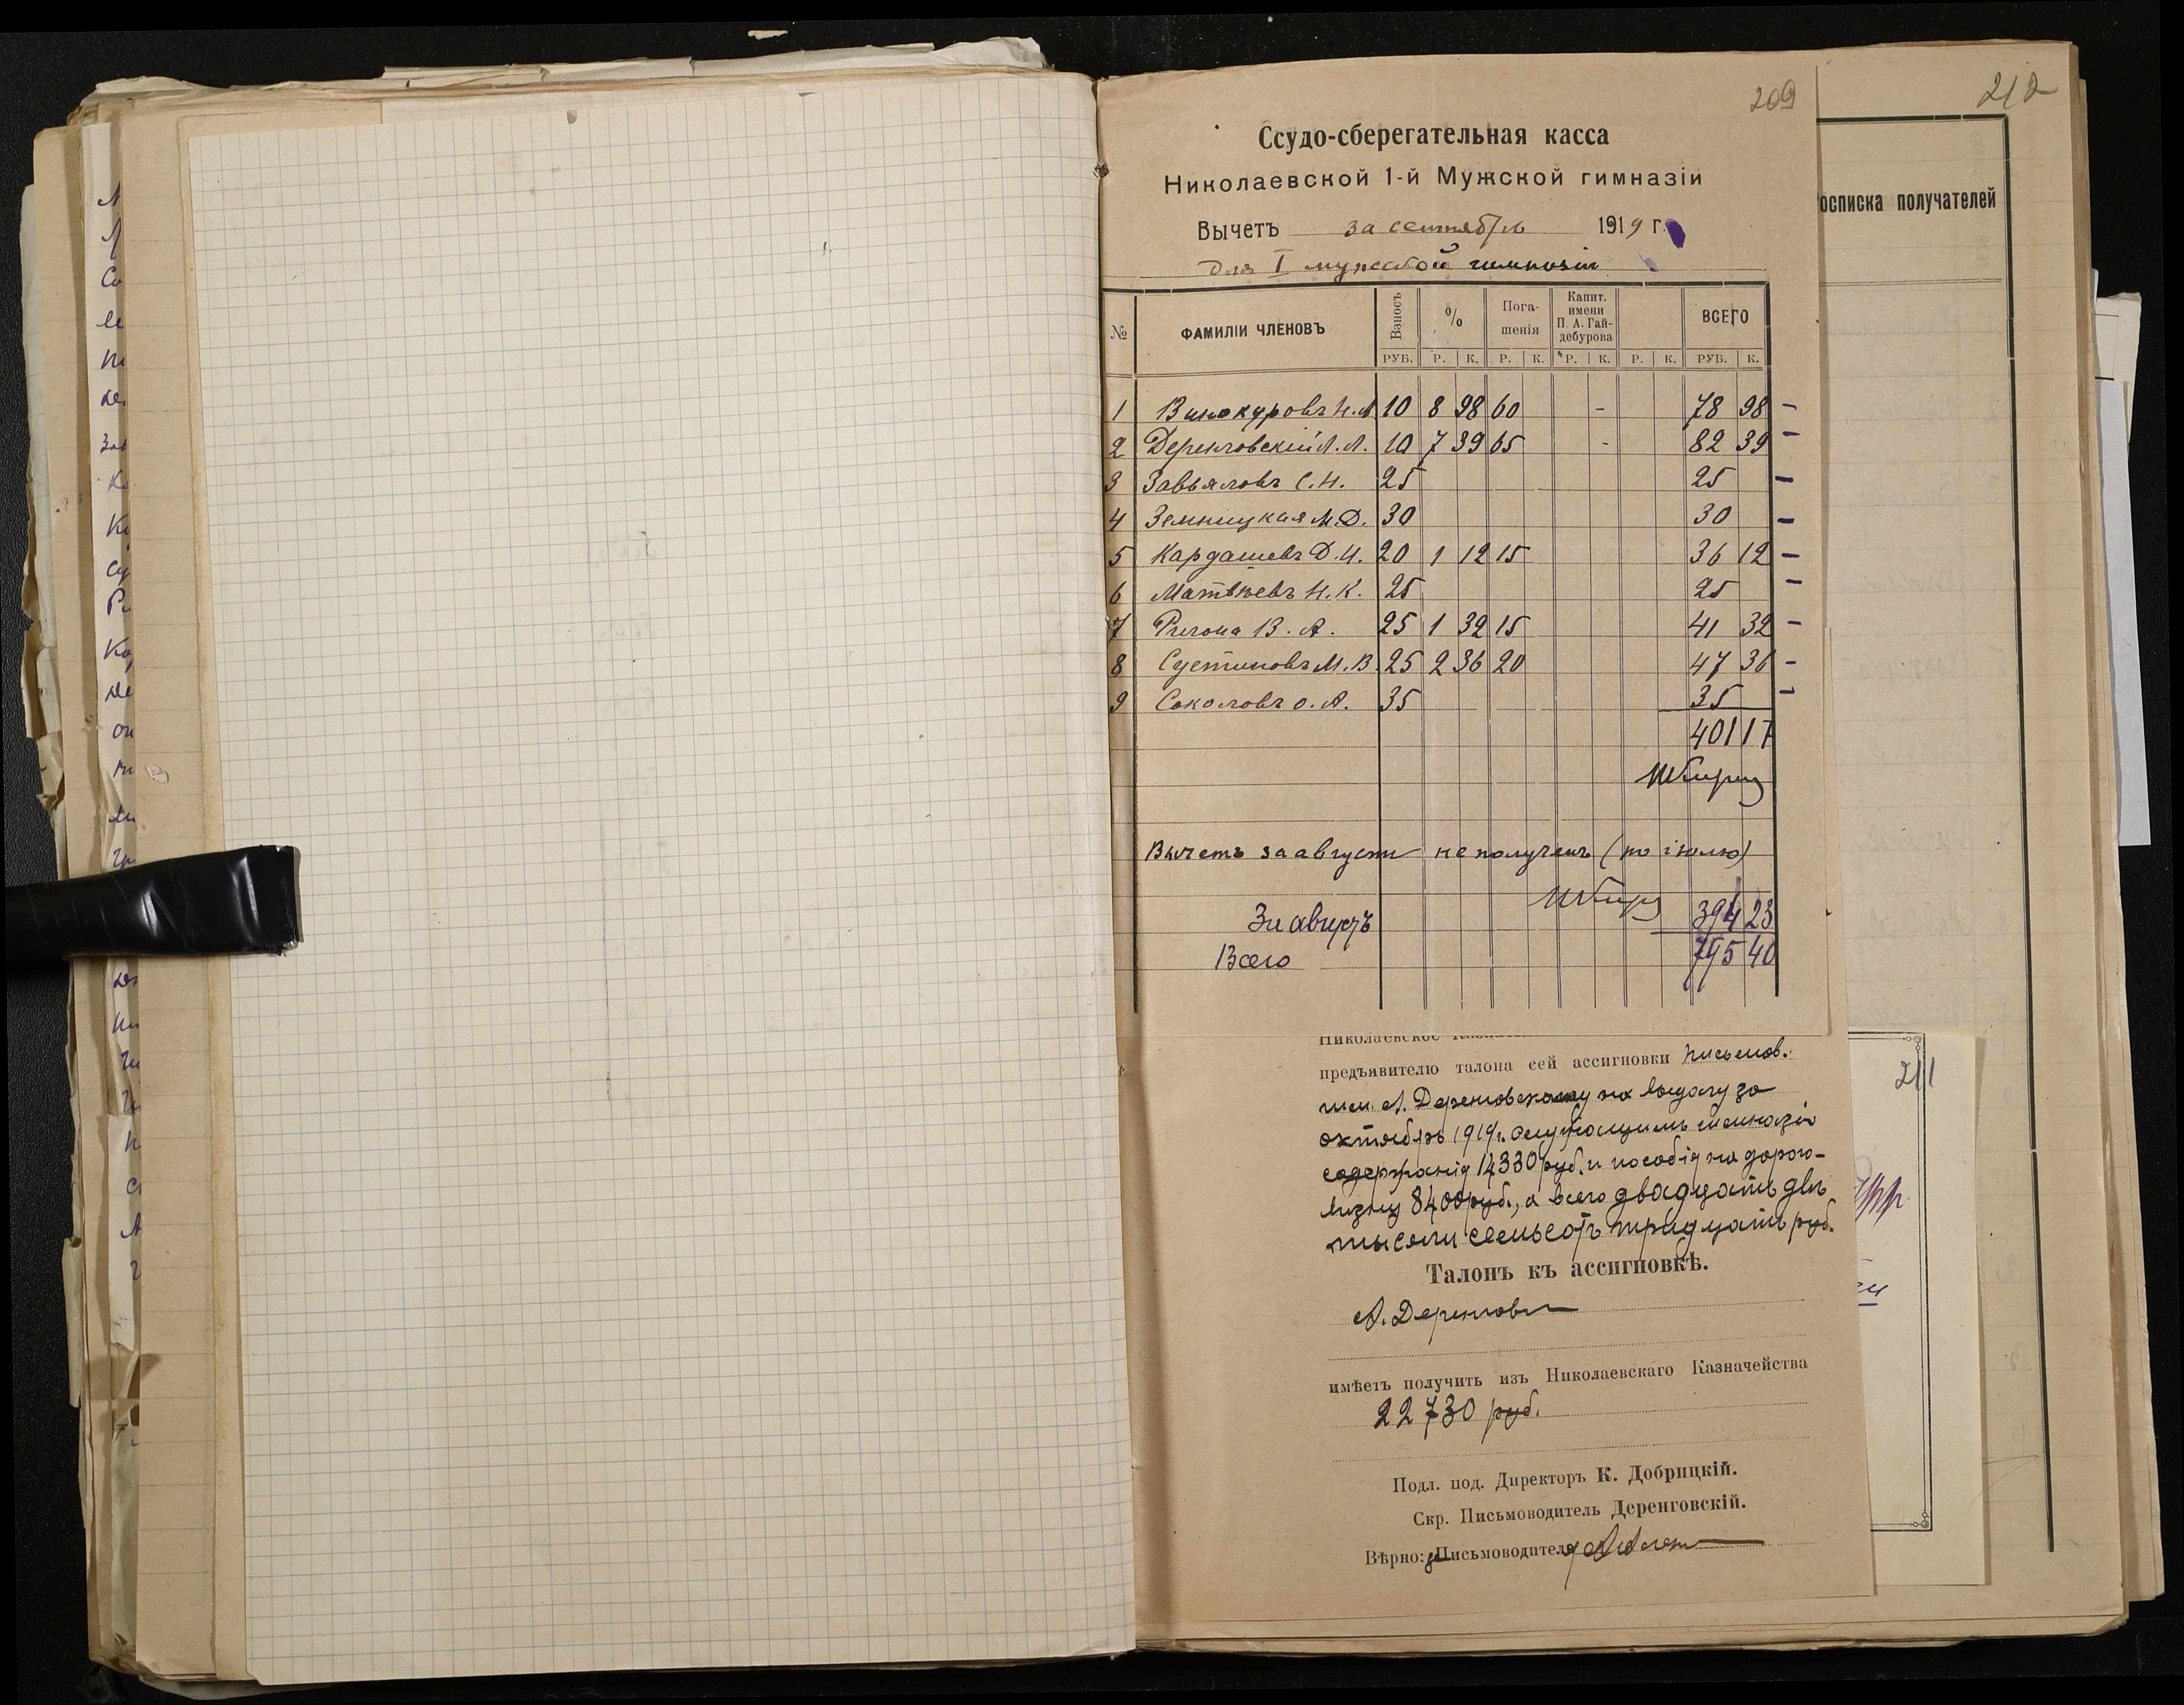 209
Ссудо-сберегательная касса
Николаевской 1-й Мужской гимназіи
Вычетъ за сентябрь 1919 г.
для I мужской гимназіи
№ ФАМИЛІИ ЧЛЕНОВЪ Взносъ % Пога-шенія Капит. имени П. А. Гай-дебурова ВСЕГО
РУБ. Р. К. Р. К. Р. К. Р. К. РУБ. К.
1 Винокуровъ Н.А 10 8 98 60 - 78 98 –
2 Деренговскій А.А. 10 7 39 65 - 82 39 –
3 Завьяловъ С.Н. 25 25 –
4 Земницкая М.Д. 30 30 –
5 Кардашевъ Д.И. 20 1 12 15 36 12 –
6 Матвѣевъ Н.К. 25 25 –
7 В. А. 25 1 32 15 41 32 –
8 Сустиновъ М.В. 25 2 36 20 47 36 –
9 Соколовъ О.А. 35 35 –
401 17
Вычетъ за августъ не полученъ (по іюлю)
За августъ 394 23
Всего 795 40
Николаевское
предъявителю талона сей ассигновки письмов.
А. Деренговскому на выдачу за
октябрь 1919 г. служащимъ гимназіи
содержанія 14330 руб. и пособія на дорого-
визну 8400 руб., а всего двадцать двѣ
тысячи семьсотъ тридцать руб.
Талонъ къ ассигновкѣ.
А. Деренговск
имѣетъ получить изъ Николаевскаго Казначейства
22730 руб.
Подл. под. Директоръ К. Добрицкій.
Скр. Письмоводитель Деренговскій.
Вѣрно: Письмоводителя
212
осписка получателей
211